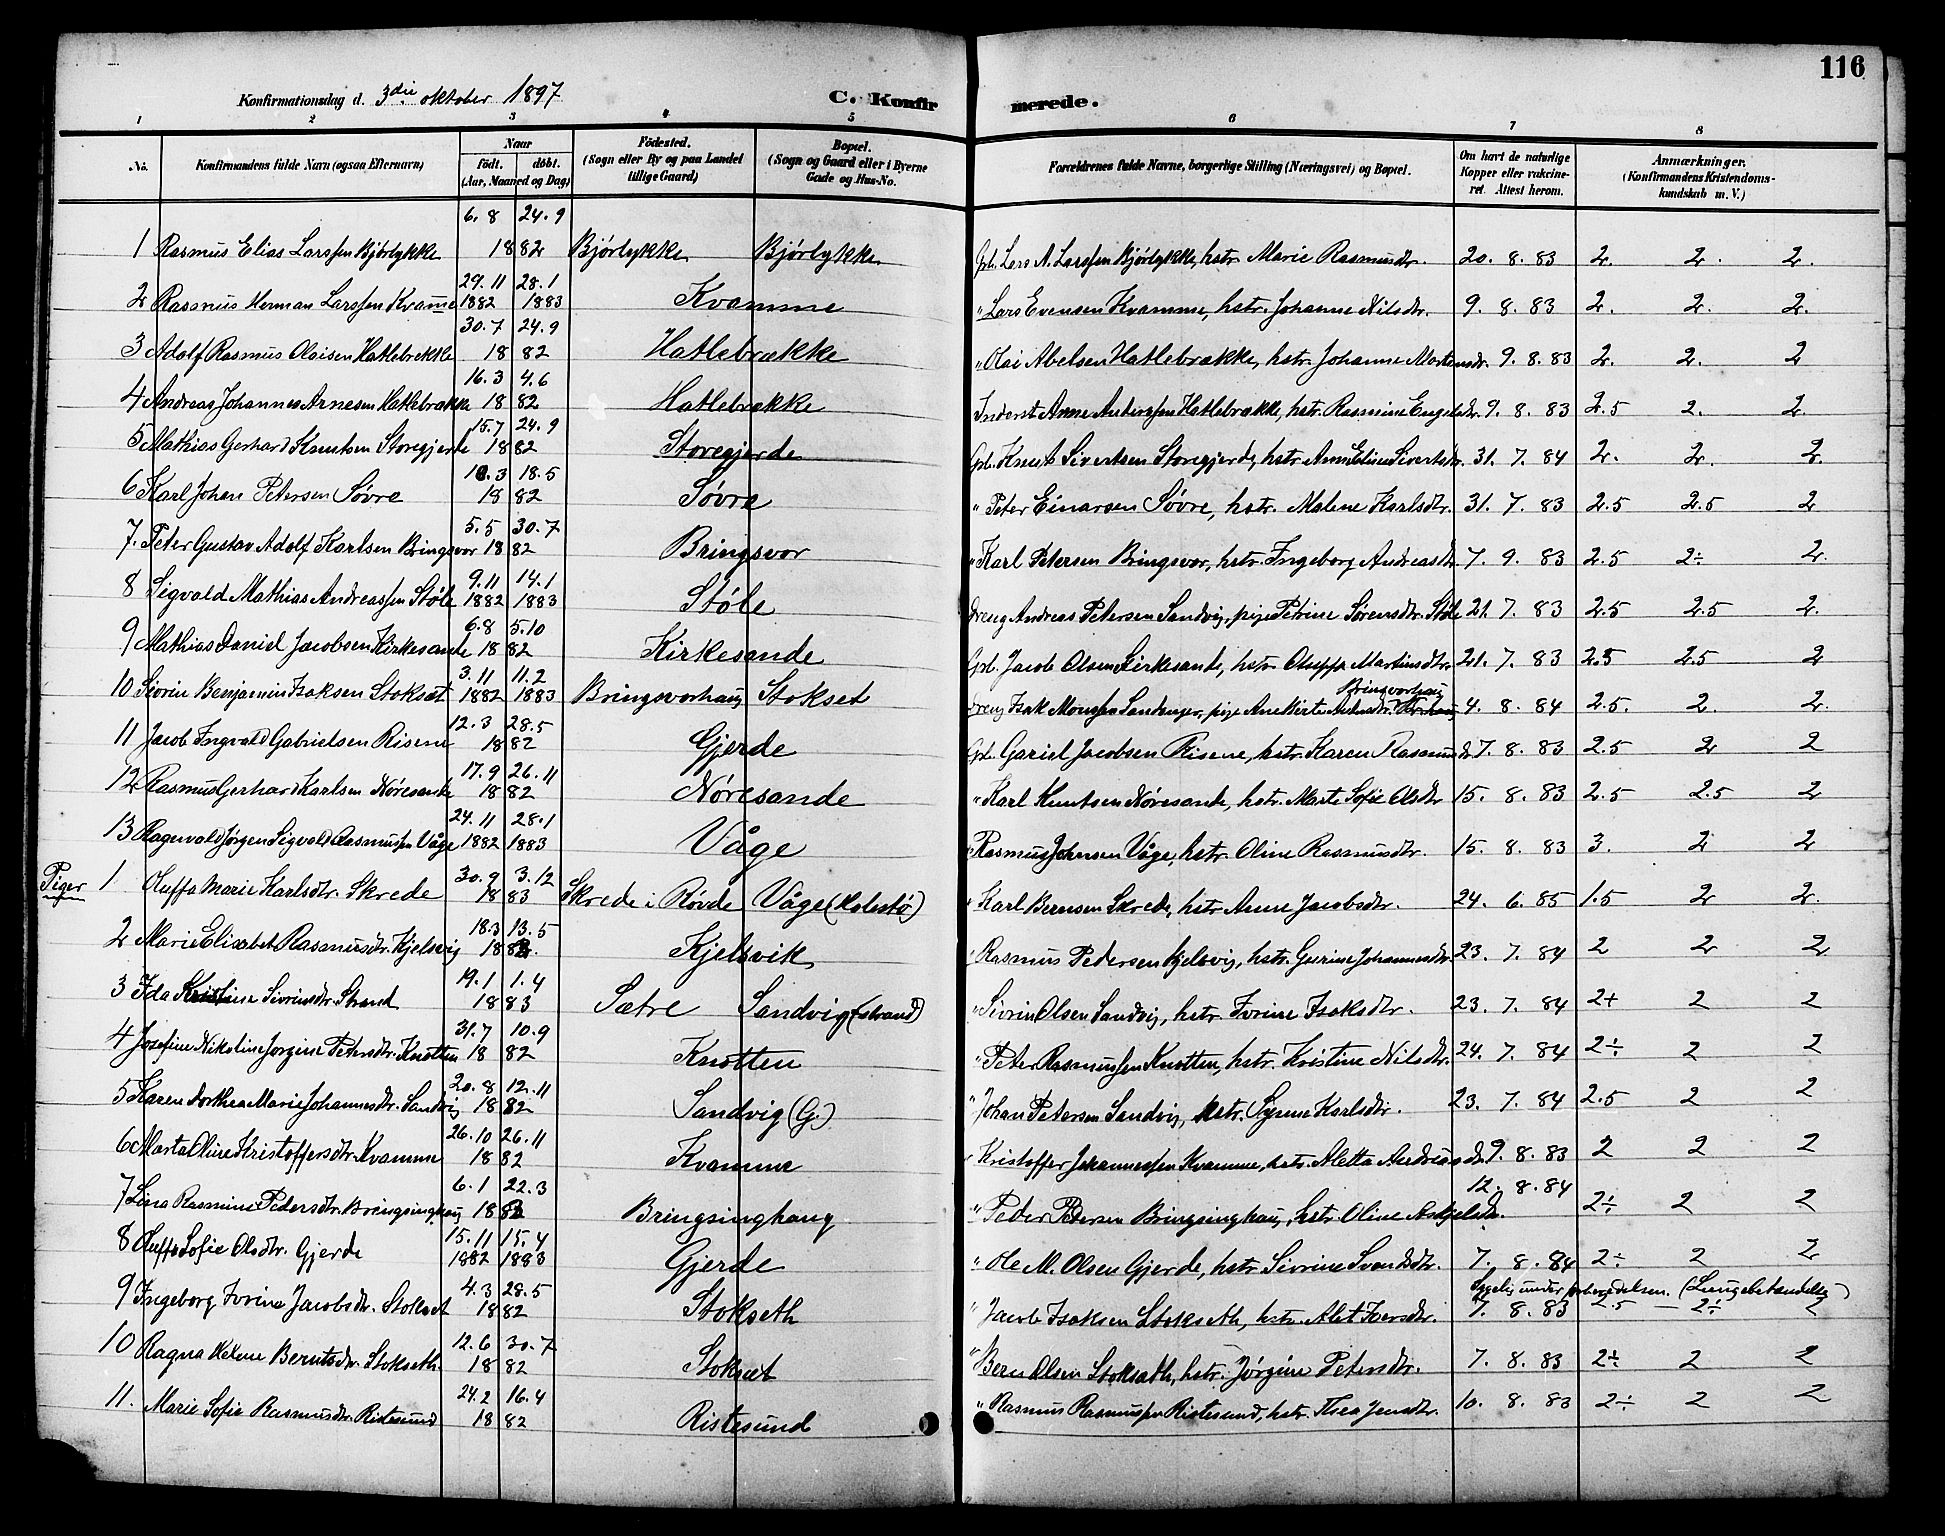 116
Konfirmationsdag d. 3die oktober 1897 C. Konfirmerede.
1 2 3 4 5 6 7 8
No. Konfirmandens fulde Navn (ogsaa Efternavn) Naar födt. döbt. (Aar, Maaned og Dag) Födested. (Sogn eller By og paa Landet tillige Gaard) Bopæl. (Sogn og Gaard eller i Byerne Gade og Hus-No. Forældrenes fulde Navne, borgerlige Stilling (Næringsvei) og Bopæl. Om havt de naturlige Kopper eller vakcineret. Attest herom. Anmærkninger. (Konfirmandens Kristendomskundskab m. V.)
6. 8 24. 9
1 Rasmus Elias Larssen Bjørlykke 1882 Bjørlykke Bjørlykke Gbr. Lars A. Larssen Bjørlykke, hstr. Marie Rasmusdtr. 20. 8. 83 2. 2. 2.
29. 11 28. 1
2 Rasmus Herman Larssen Kvamme 1882 1883 Kvamme " Lars Evensen Kvamme, hstr. Johanne Nilsdtr. 9. 8. 83 2. 2. 2.
30. 7 24. 9
3 Adolf Rasmus Olaisen Hatlebrekke 1882 Hatlebrække " Olai Abelsen Hatlebrække, hstr. Johanne Martinsdtr. 9. 8. 83 2. 2. 2
16. 3 4. 6
4 Andreas Johannes Arnesen Hatlebrække 1882 Hatlebrække Inderst Arne Anderssen Hatlebrække, hstr. Rasmine Engelsdtr. 9. 8. 83 2.5 2. 2.
15. 7 24. 9
5 Mathias Gerhard Knutsen Storegjerde 1882 Storegjerde Gbr. Knut Sivertsen Storegjerde, hstr. Anne Eline Sivertsdtr. 31. 7. 84 2. 2. 2.
18. 3 18. 5
6 Karl Johan Petersen Søvre 1882 Søvre " Peter Einarsen Søvre, hstr. Malene Karlsdtr. 31. 7. 83 2.5 2.5 2
5. 5 30. 7
7. Peter Gustav Adolf Karlsen Bringsvor 1882 Bringsvor " Karl Petersen Bringsvor, hstr. Ingeborg Andreasdtr. 7. 9. 83 2.5 2÷ 2.
9. 11 14. 1
8 Sigvald Mathias Andreassen Støle 1882 1883 Støle Dreng Andreas Petersen Sandvig, pige Petrine Sørensdtr. Støle 21. 7. 83 2.5 2.5 2.
6. 8 5. 10
9 Mathias Daniel Jacobsen Kirkesande 1882 Kirkesande Gbr. Jacob Olsen Kirkesande, hstr. Oluffa Martinsdtr. 21. 7. 83 2.5 2.5 2
3. 11 11. 2
10 Sivrin Benjamin Isaksen Stokset 1882 1883 Bringsvorhaug Stokset Dreng Isak Monssen, pige Ane Bringsvorhaug 4. 8. 84 2.5. 2. 2.
12. 3 28. 5
11 Jacob Ingvald Gabrielsen Risene 1882 Gjerde Gbr. Gariel Jacobsen Risene, hstr. Karen Rasmusdtr. 7. 8. 83 2.5 2 2
17. 9 26. 11
12 Rasmus Gerhard Karlsen Nøresande 1882 Nøresande " Karl Knutsen Nøresande, hstr. Marte Sofie Olsdtr. 15. 8. 83 2.5 2.5 2
24. 11 28. 1
13 Ragnvald Jørgen Sigvald Rasmussen Våge 1882 1883 Våge " Rasmus Johnsen Våge, hstr. Oline Rasmusdtr. 15. 8. 83 3. 2 2
30. 9 3. 12
Piger 1 Oluffa Marie Karlsdtr. Skrede 1883 Skrede i Røvde Våge (Holestø) " Karl Berntsen Skrede, hstr. Anne Jacobsdtr. 24. 6. 85 1.5 2 2.
18. 3 13. 5
2 Marie Elisabet Rasmusdtr. Kjelsvig 1882. Kjelsvik " Rasmus Pedersen Kjelsvig, hstr. Gurine Johannesdtr. 23. 7. 84 2 2 2
19. 1 1. 4
3 Ida Kristine Sivrinsdtr. Strand 1883 Sætre Sandvig (strand) " Sivrin Olsen Sandvig, hstr. Ivrine Isaksdtr. 23. 7. 84 2+ 2 2
31. 7 10. 9
4 Josefine Nikoline Jorgine Petersdtr. Knotten 1882 Knotten " Peter Rasmussen Knotten, hstr. Kristine Nilsdtr. 24. 7. 84 2÷ 2 2
20. 8 12. 11
5 Karen Dorthea Marie Johannesdtr. Sandvig 1882 Sandvig (G.) " Johan Petersen Sandvig, hstr. Synne Karlsdtr. 23. 7. 84 2.5 2 2
26. 10 26. 11
6 Marta Oline Kristoffersdtr. Kvamme 1882 Kvamme " Kristoffer Johannessen Kvamme, hstr. Aletta Andreasdtr. 9. 8. 83 2 2 2
6. 1 22. 3
7 Lina Rasmine Pedersdtr. Bringsinghaug 1883 Bringsinghaug " Peder Petersen Bringsinghaug, hstr. Oline Askjelsdtr. 12. 8. 84 2÷ 2 2
15. 11 15. 4
8 Oluffa Sofie Olsdtr. Gjerde 1882 1883 Gjerde " Ole M. Olsen Gjerde, hstr. Sivrine Svendsdtr. 7. 8. 84 2÷ 2 2
4. 3 28. 5
Sygelig under forberedelsen. (Lungebetændelse)
9 Ingeborg Ivrine Jacobsdtr. Stokset 1882 Stokseth " Jacob Isaksen Stokseth, hstr. Alet Iversdtr. 7. 8. 83 2.5 — 2÷ 2
12. 6 30. 7
10 Ragna Helene Berntsdtr. Stokseth. 1882 Stokset " Bern Olsen Stokseth, hstr. Jørgine Petersdtr. 7. 8. 83 2÷ 2 2
24. 2 16. 4
11. Marie Sofie Rasmusdtr. Ristesund 1882 Ristesund " Rasmus Rasmussen Ristesund, hstr. Thea Jensdtr. 10. 8. 83 2÷ 2 2